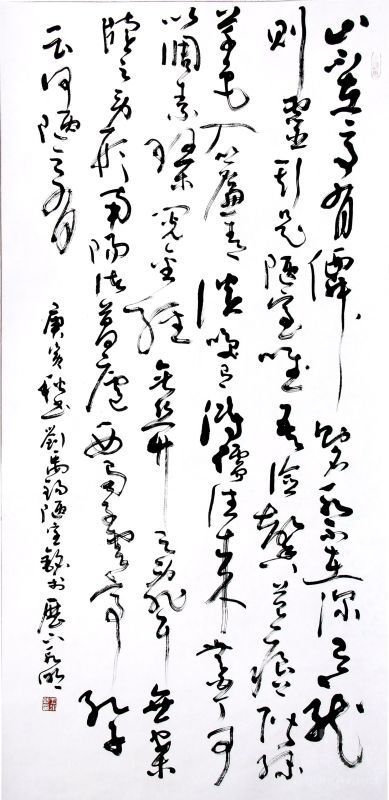 山不在高有僊則名水不在深有龍
則靈斯是陋室唯吾德馨苔痕上階綠
草色入簾青談笑有鴻儒往來無白丁可
以調素琴閱金經無絲竹之亂耳無案
牘之勞形南陽諸葛廬西蜀子雲亭孔子
云何陋之有
庚寅秋書劉禹錫陋室銘於歷下